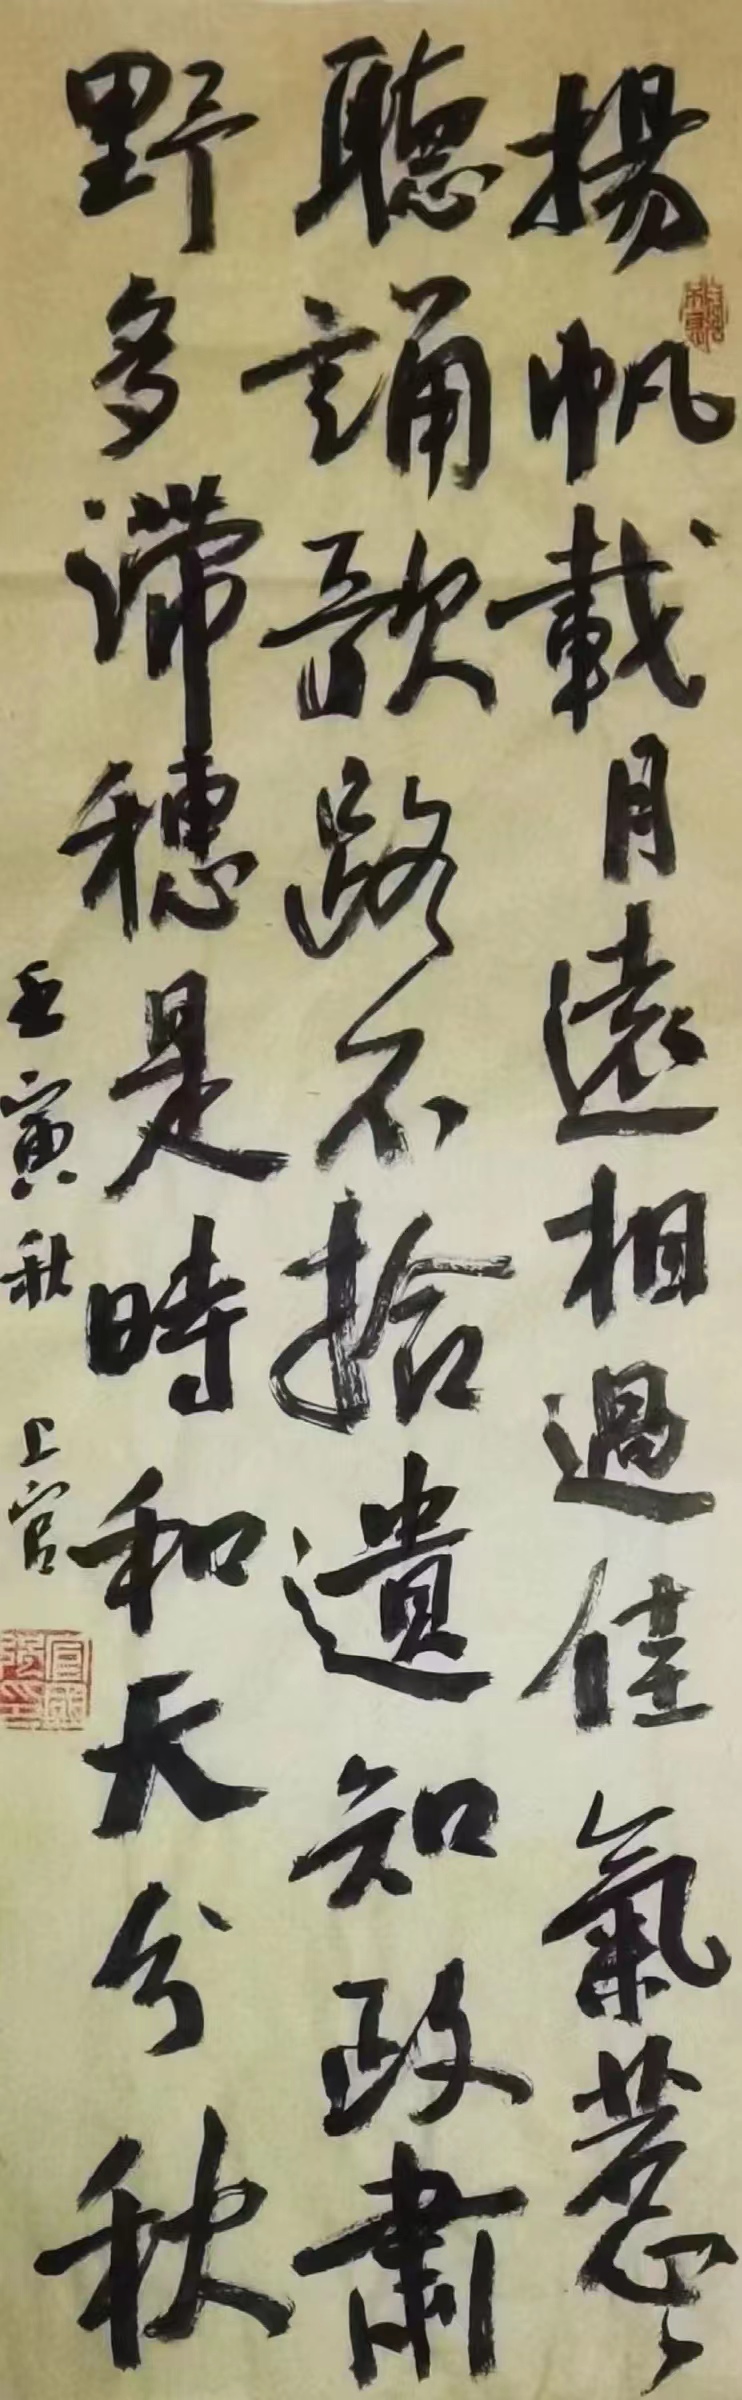 揚帆載月遠相過佳氣葱々
聽誦歌路不拾遺知政肅
野多滯穗是時和天分秋
壬寅秋 上官